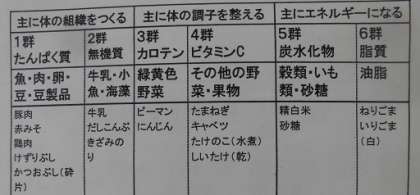 主に体の組織をつくる
主に体の調子を整える
主にエネルギーになる
1群
たんぱく質
2群
無機質
3群
カロテン
4群
ビタミンC
5群
炭水化物
6群
脂質
魚・肉・卵・
豆・豆製品
牛乳・小
魚・海藻
緑黄色
野菜
その他の野
菜・果物
穀類・いも
類・砂糖
油脂
豚肉
赤みそ
鶏肉
けずりぶし
かつおぶし(砕
片)
牛乳
だしこんぶ
きざみの
り
ピーマン
にんじん
たまねぎ
キャベツ
たけのこ(水煮)
しいたけ(乾)
精白米
砂糖
ねりごま
いりごま
(白)